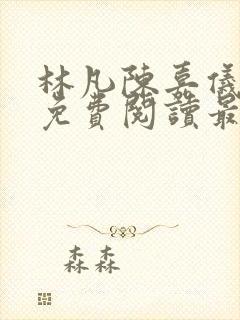 林凡陳嘉儀
免費閱讀最
森森